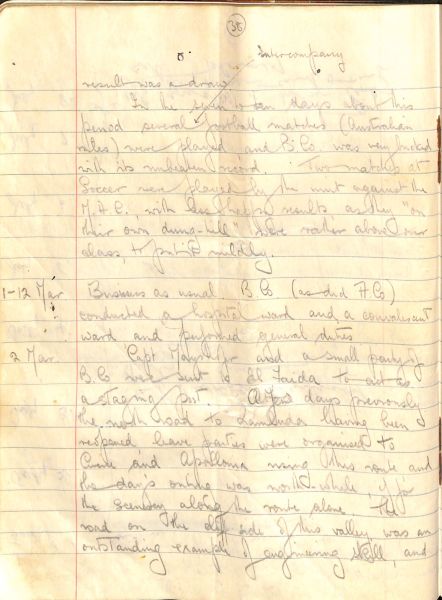 38
Intercompany
result was a draw.
In the seven to ten days about this
period several football matches (Australian
rules) were played and B Co. was very bucked
with its unbeaten record. Two matches at
Soccer were played by the unit against the
M.A.C., with less happy results as they "on
their own dung-hill" were rather above our
class, to put it mildly.
1-12 Mar. Business as usual. B Co (as did A Co)
conducted a hospital ward and a convalescent
ward and performed general duties
2 Mar. Capt and a small party of
B. Co were sent to El Faida to act as
a staging post. A few days previously
the north road to having been
reopened, leave parties were organised to
Cyrene and Apollonia using this route and
the days outing was worth while, if for
the scenery along the route alone. The
road on the side of this valley, was an
outstanding example of engineering skill, and